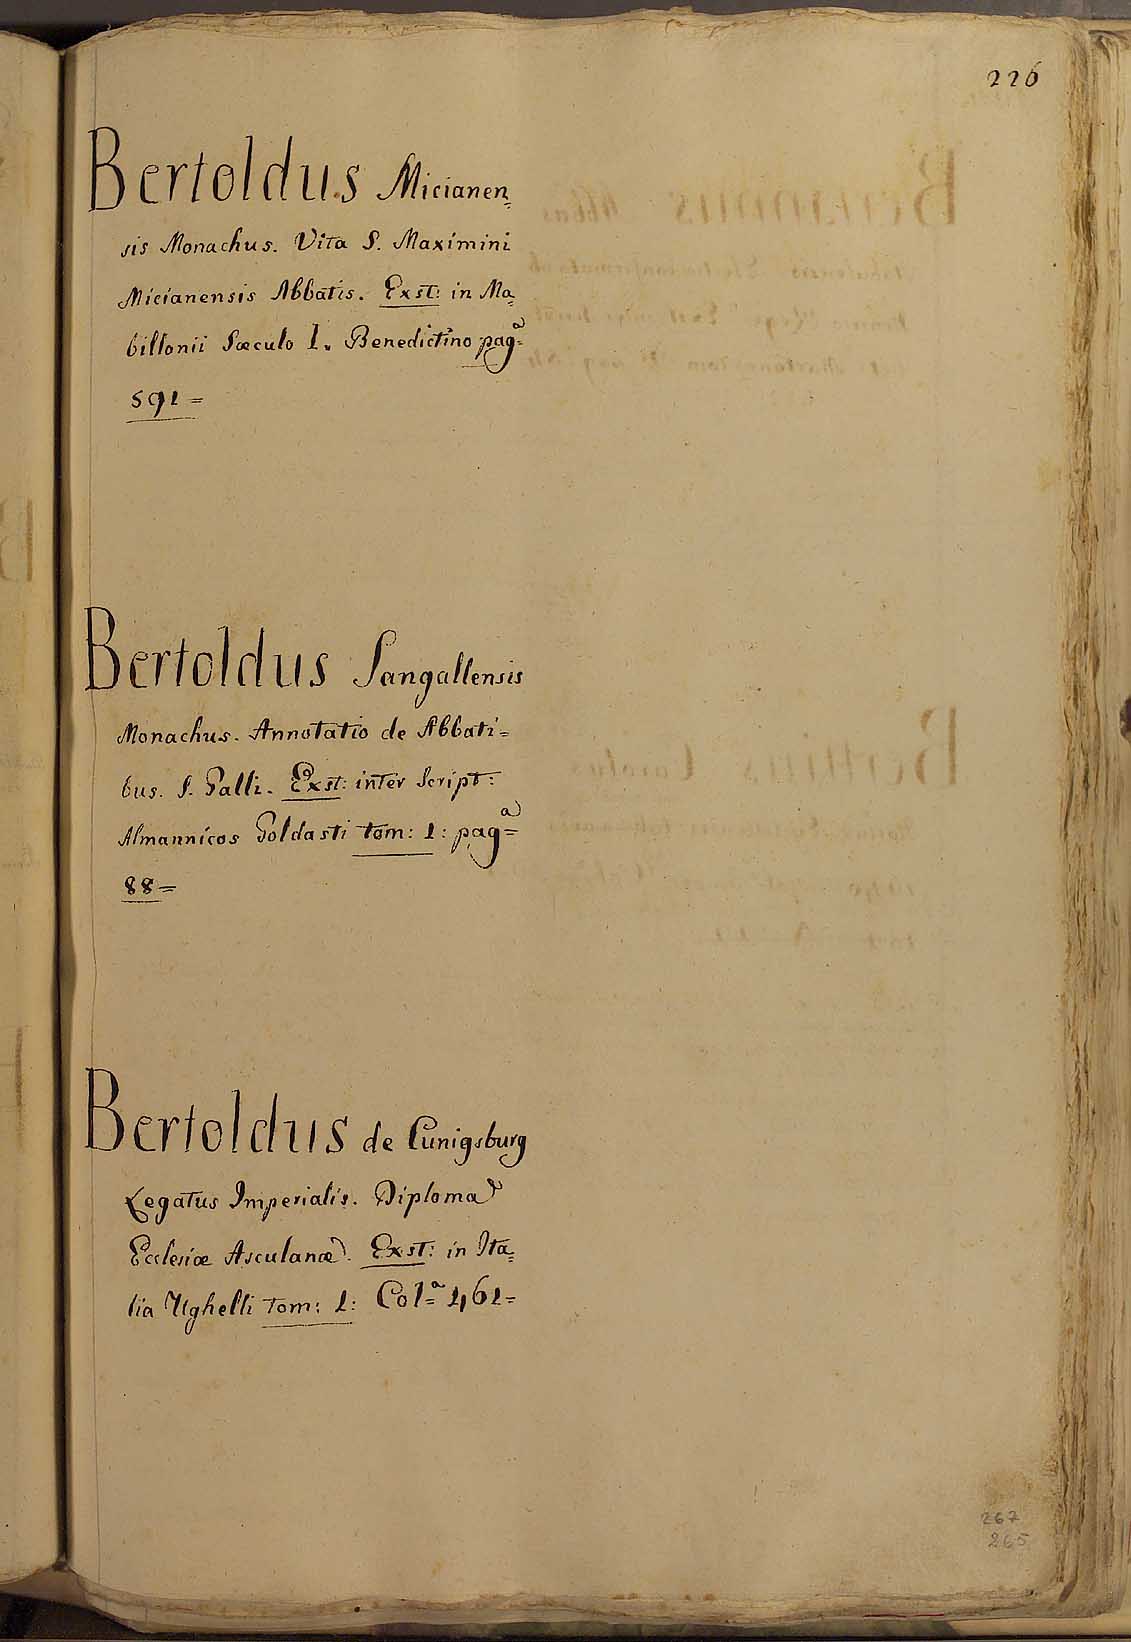 226
Bertoldus Micianen=
sis Monachus. Vita S. Maximini
Micianensis Abbatis. Exst: in Ma=
billonii Sæculo I. Benedictino pagª=
591=
Bertoldus Sangallensis
Monachus. Annotatio de Abbati=
bus. S. Galli. Exst: inter Script:
Almannicos Goldasti tom: 1: pagª=
88=
Bertoldus de Cunigsburg
Legatus Imperialis. Diploma
Ecclesiæ Asculanæ. Exst: in Ita=
lia Ughelli tom: 1: Col=ª 461=
267
265